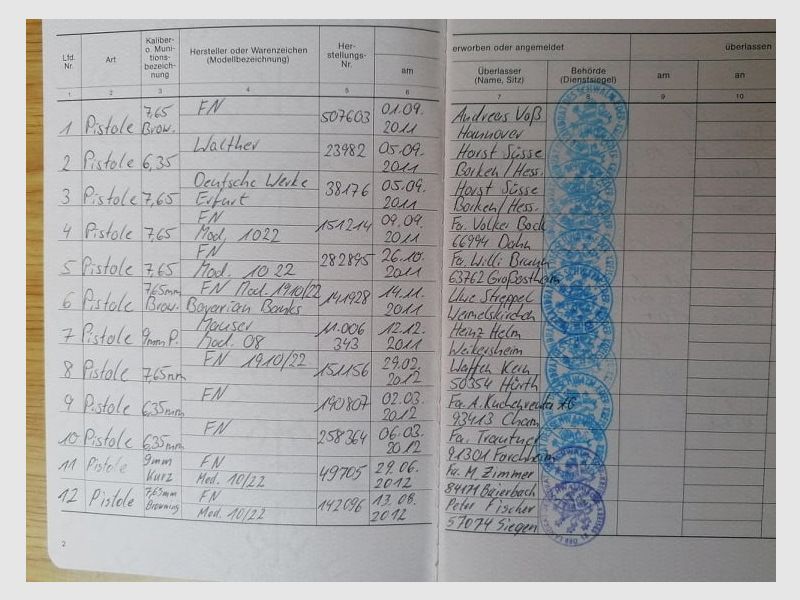 Lfd. Nr. Art Kaliber- o. Muni- tions- bezeich- nung Hersteller oder Warenzeichen (Modellbezeichnung) Her- stellungs- Nr. am
1 2 3 4 5 6
1 Pistole 7,65 Brow. FN 507603 01.09. 2011
2 Pistole 6,35 Walther 23982 05.09. 2011
3 Pistole 7,65 Deutsche Werke Erfurt 38176 05.09. 2011
4 Pistole 7,65 FN Mod. 1022 151214 09.09. 2011
5 Pistole 7,65 FN Mod. 1022 282895 26.10. 2011
6 Pistole 7,65mm Brow. FN Mod. 1910/22 Bavarian Banks 141928 14.11. 2011
7 Pistole 9mm P. Mauser Mod. 08 11.006 343 12.12. 2011
8 Pistole 7,65mm FN 1910/22 151156 29.02. 2012
9 Pistole 6,35mm FN 190807 02.03. 2012
10 Pistole 6,35mm FN 258364 06.03. 2012
11 Pistole 9mm Kurz FN Mod. 10/22 49705 29.06. 2012
12 Pistole 7,65mm Browning FN Mod. 10/22 142096 13.08. 2012
2
erworben oder angemeldet überlassen
Überlasser (Name, Sitz) Behörde (Dienstsiegel) am an
7 8 9 10
Andreas Voß
Hannover
Horst Süsse
Borken/Hess.
Horst Süsse
Borken/Hess.
Fa. Volker Bock
66994 Dahn
Fa. Willi Bruun
63762 Großostheim
Uwe Streppel
Wermelskirchen
Heinz Helm
Weikersheim
Waffen Kern
50354 Hürth
Fa. A. Kuchenreuter
93413 Cham
Fa. Trautner
91301 Forchheim
Fa. M. Zimmer
84171 Baierbach
Peter Fischer
57074 Siegen